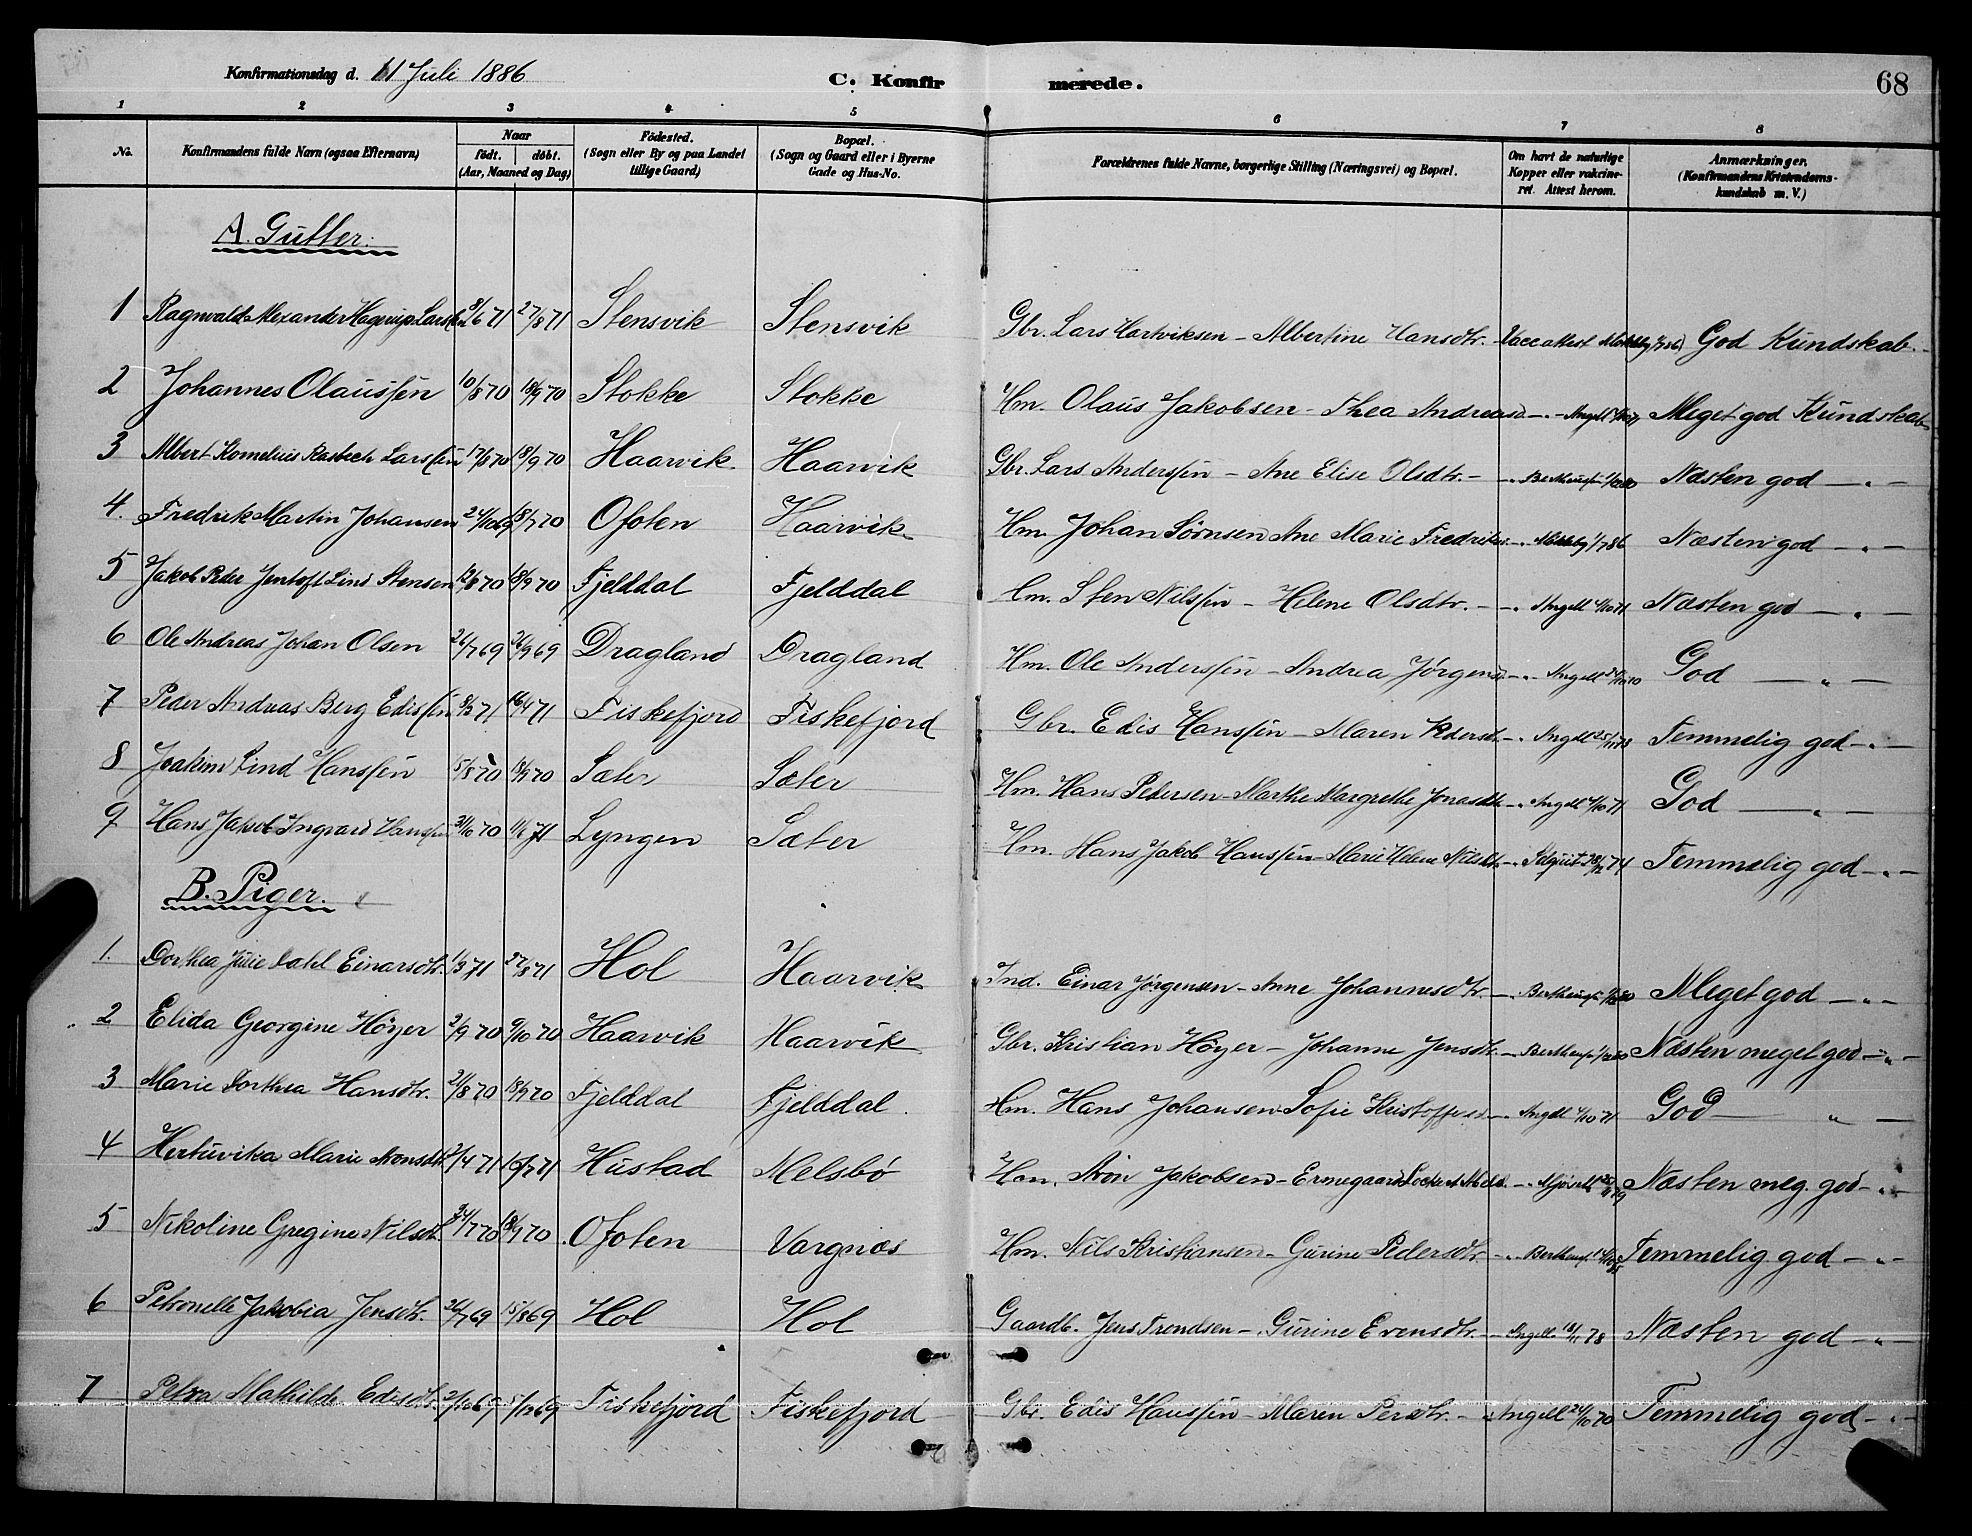 Konfirmationsdag d. 11 Juli 1886 C. Konfirmerede. 68
1 2 3 4 5 6 7 8
No. Konfirmandens fulde Navn (ogsaa Efternavn) Naar født. døbt. (Aar, Maaned og Dag) Fødested. (Sogn eller By og paa Landet tillige Gaard) Bopæl. (Sogn og Gaard eller i Byerne Gade og Hus-No. Forældrenes fulde Navne, borgerlige Stilling (Næringsvei) og Bopæl. Om havt de naturlige Kopper eller vaccineret. Attest herom. Anmærkninger. (Konfirmandens Kristendomskundskab m. V.)
A. Gutter.
1 Ragnvald Alexander Hagerup Larsen 8/6 71 27/8 71 Stensvik Stensvik Gbr. Lars Hartviksen - Albertine Hansdtr. - Vaccattest God Kundskab. -
2 Johannes Olaussen 10/8 70 18/9 70 Stokke Stokke Hm. Olaus Jakobsen - Thea Andreasd - " - Angell Meget god Kundskab
3 Albert Kornelius Larssen 17/8 70 18/9 70 Haarvik Haarvik Gbr. Lars Anderssen - Ane Elise Olsdtr. - " Næsten god - " -
4. Fredrik Martin Johansen 24/10 69 18/7 70 Ofoten Haarvik Hm. Johan Sørnsen Ane Marie - " 1/7 86 Næsten god - " -
5 Jakob Peder Jentoft Lind Stensen 12/8 70 18/9 70 Fjelddal Fjelddal Hm. Sten Nilssen - Helene Olsdtr. - " Angell 4/10 71 Næsten god - " -
6 Ole Andreas Johan Olsen 26/7 69 26/9 69 Dragland Dragland Hm. Ole Anderssen - Andrea Jørgensd - " Angell God - " -
7 Peder Andreas Berg Edissen 8/3 71 16/4 71 Fiskefjord Fiskefjord Gbr. Edis Hanssen - Maren Pedersd. - " Angell Temmelig god - " -
8 Joakim Lind Hanssen 15/8 70 18/9 70 Sæter Sæter Hm. Hans Pedersen - Marthe Margrethe Jonasdtr - " Angell 4/10 71 God - " -
9 Hans Jakob Ingvard Hanssen 31/10 70 11/6 71 Lyngen Sæter Hm. Hans Jakob Hanssen - Marie Helene Nilsdtr - " 74 Temmelig god - " -
B. Piger.
1. Dorthea Julie Dahl Einarsdtr. 1/3 71 27/8 71 Hol Haarvik Ind. Einar Jørgensen - Anne Johannesdtr. - " Meget god - " -
2 Elida Georgine Høyer 2/9 70 9/10 70 Haarvik Haarvik Gbr. Kristian Høyer - Johanne Jensdtr. - " Næsten meget god - " -
3 Marie Dorthea Hansdtr. 21/8 70 18/9 70 Fjelddal Fjelddal. Hm. Hans Johansen - Sofie Kristoffersd - " Angell 4/10 71 God - " -
4 Hertuvika Marie Aronsdtr 2/4 71 16/7 71 Hustad Melsbø Hm. Aron Jakobsen - Ermegaard - " Næsten meg. god - " -
5 Nikoline Gregine Nilsdtr. 24/7 70 18/9 70 Ofoten Vargnæs Hm. Nils Kristiansen - Gurine Pedersdtr. - " Temmelig god - " -
6 Petronelle Jakobia Jensdtr. 26/7 69 15/8 69 Hol Hol Gaardb. Jens Trondsen - Gurine Evensdtr. - Angell 18/11 78 Næsten god - " -
7 Petra Mathilde Edisdtr. 2/10 69 5/12 69 Fiskefjord Fiskefjord Gbr. Edis Hanssen - Maren Persdtr. - " Angell 24/10 70 Temmelig god - " -